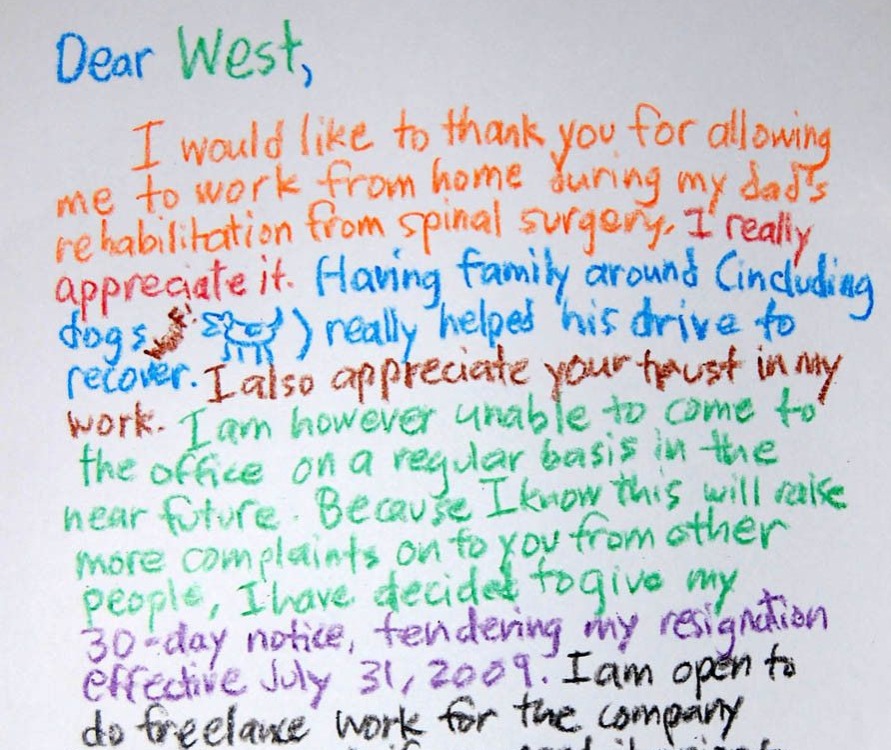 Dear West,
I would like to thank you for allowing
me to work from home during my dad's
rehabilitation from spinal surgery. I really
appreciate it. Having family around (including
dogs ) really helped his drive to
recover. I also appreciate your trust in my
work. I am however unable to come to
the office on a regular basis in the
near future. Because I know this will raise
more complaints on to you from other
people, I have decided to give my
30-day notice, tendering my resignation
effective July 31, 2009. I am open to
do freelance work for the company